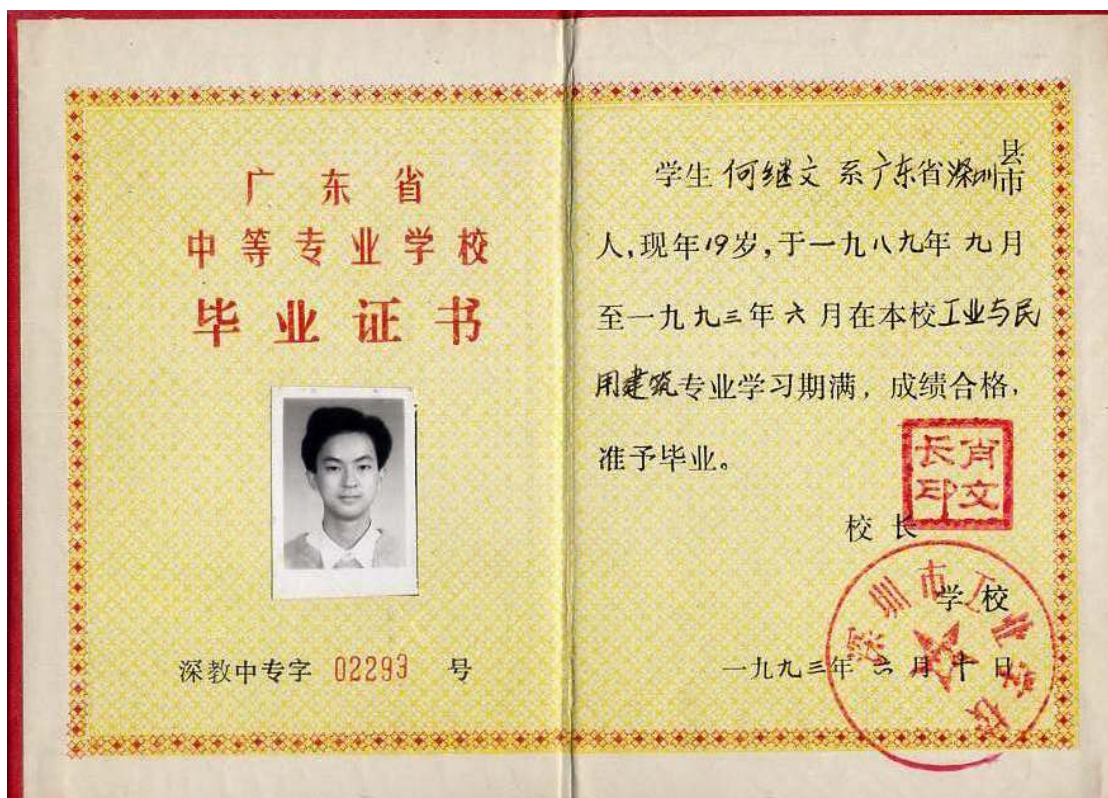 广东省
中等专业学校
毕业证书
深教中专字 02293 号
学生 何继文 系广东省深圳县市
人,现年19岁,于一九八九年 九月
至一九九三年六月在本校工业与民
用建筑专业学习期满,成绩合格,
准予毕业。
肖文长印
校长
学校
深圳市工业学校
一九九三年 六月 十日